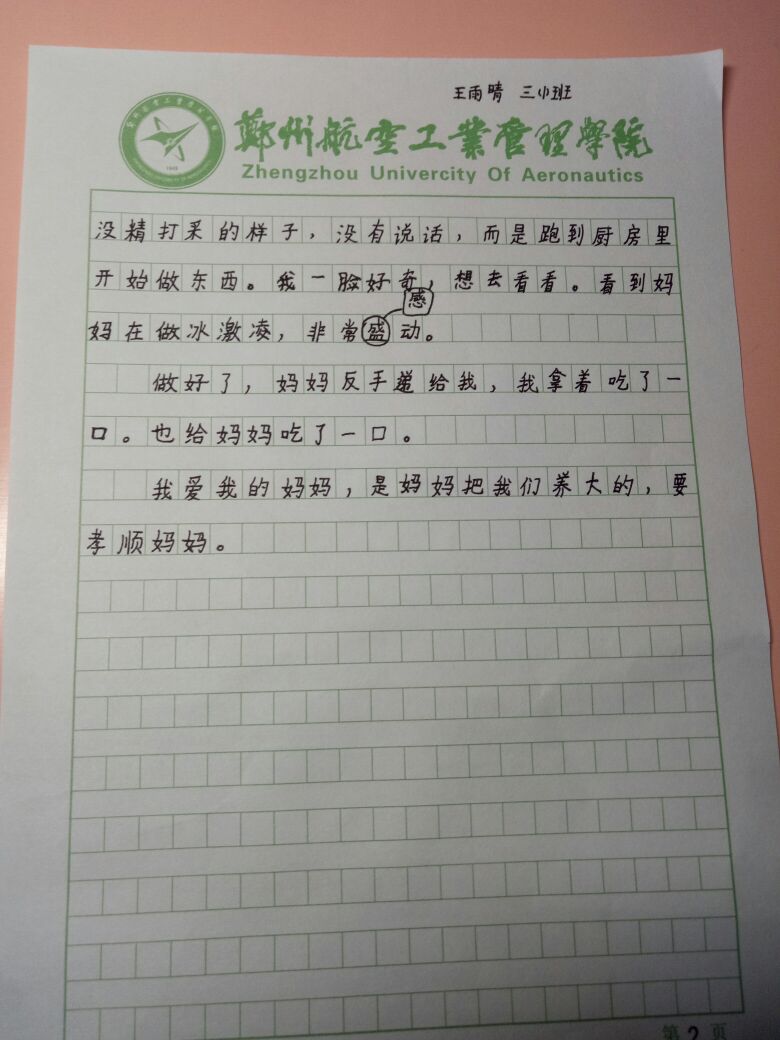 王雨晴 三小班
郑州航空工业管理学院
Zhengzhou Univercity Of Aeronautics
没精打采的样子，没有说话，而是跑到厨房里
开始做东西。我一脸好奇，想去看看。看到妈
感
妈在做冰激凌，非常盛动。
做好了，妈妈反手递给我，我拿着吃了一
口。也给妈妈吃了一口。
我爱我的妈妈，是妈妈把我们养大的，要
孝顺妈妈。
第 2 页